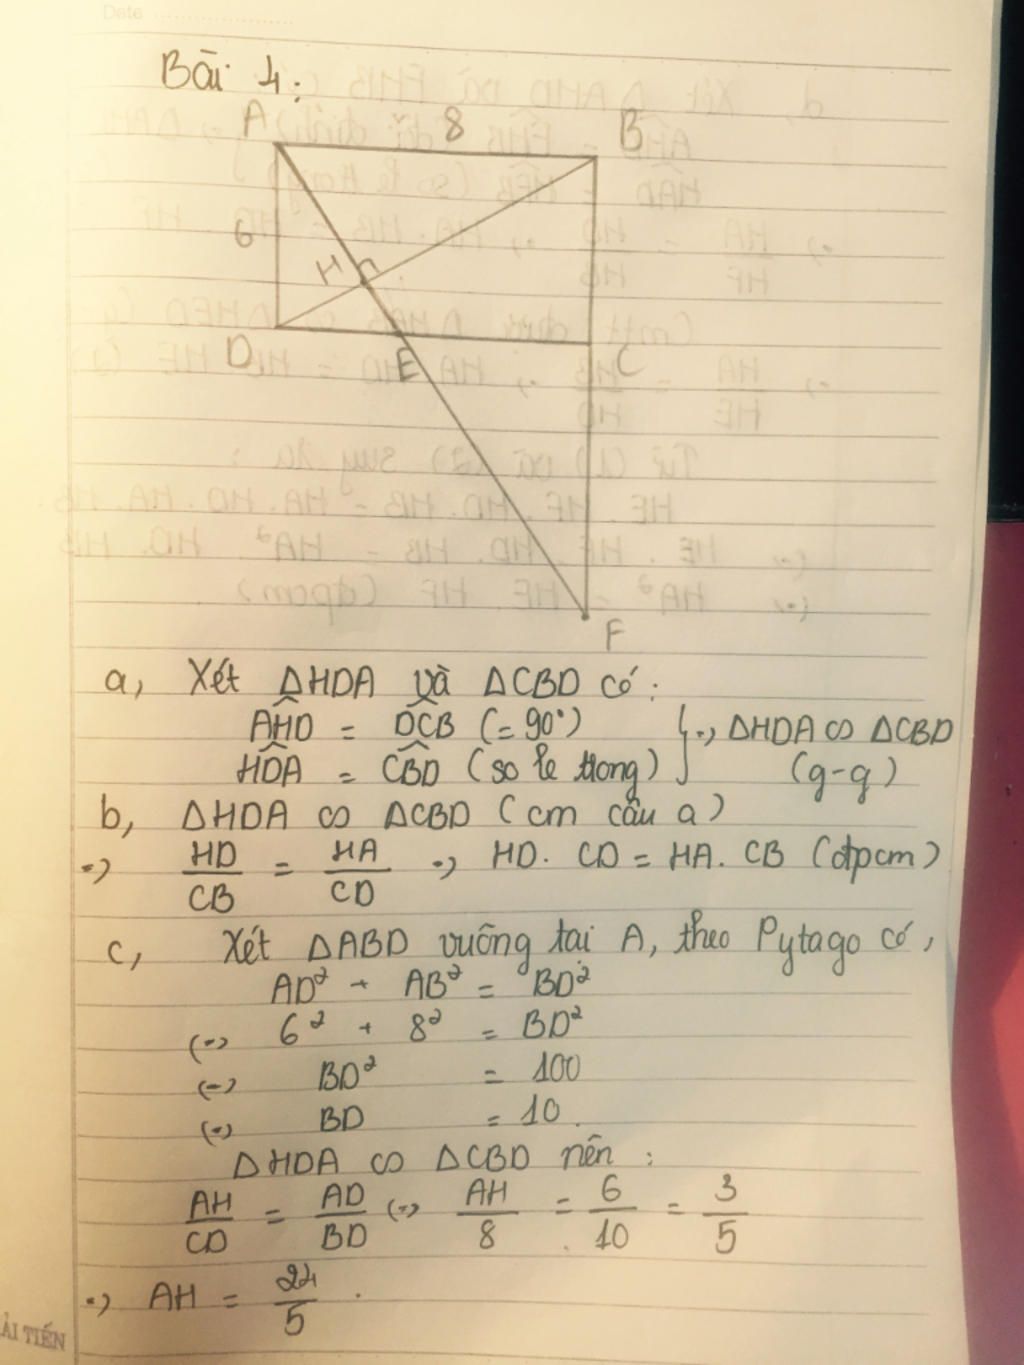 Date
Bài 4:
A 8 B
6
H
D E C
F
a, Xét ΔHDA và ΔCBD có:
AHD = DCB (= 90°)
HDA = CBD (so le trong) } => ΔHDA ∽ ΔCBD (g-g)
b, ΔHDA ∽ ΔCBD (cm câu a)
=> HD/CB = HA/CD => HD. CD = HA. CB (đpcm)
c, Xét ΔABD vuông tại A, theo Pytago có,
AD² + AB² = BD²
(=> 6² + 8² = BD²
(=> BD² = 100
(=> BD = 10.
ΔHDA ∽ ΔCBD nên:
AH/CD = AD/BD (=> AH/8 = 6/10 = 3/5
=> AH = 24/5.
ẢI TIẾN